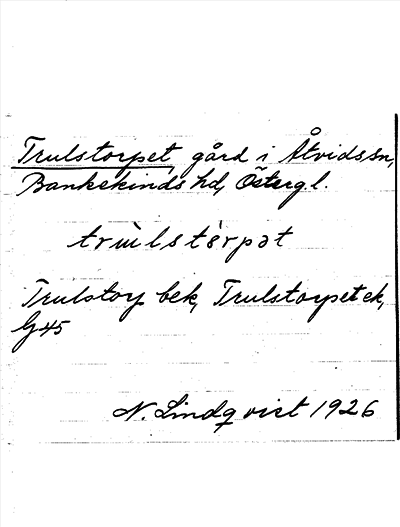 Trulstorpet, gård i Åtvids sn,
Bankekinds hd, Östergl.
trùlstèrpət
Trulstorp bek, Trulstorpet ek,
G45
N. Lindqvist 1926